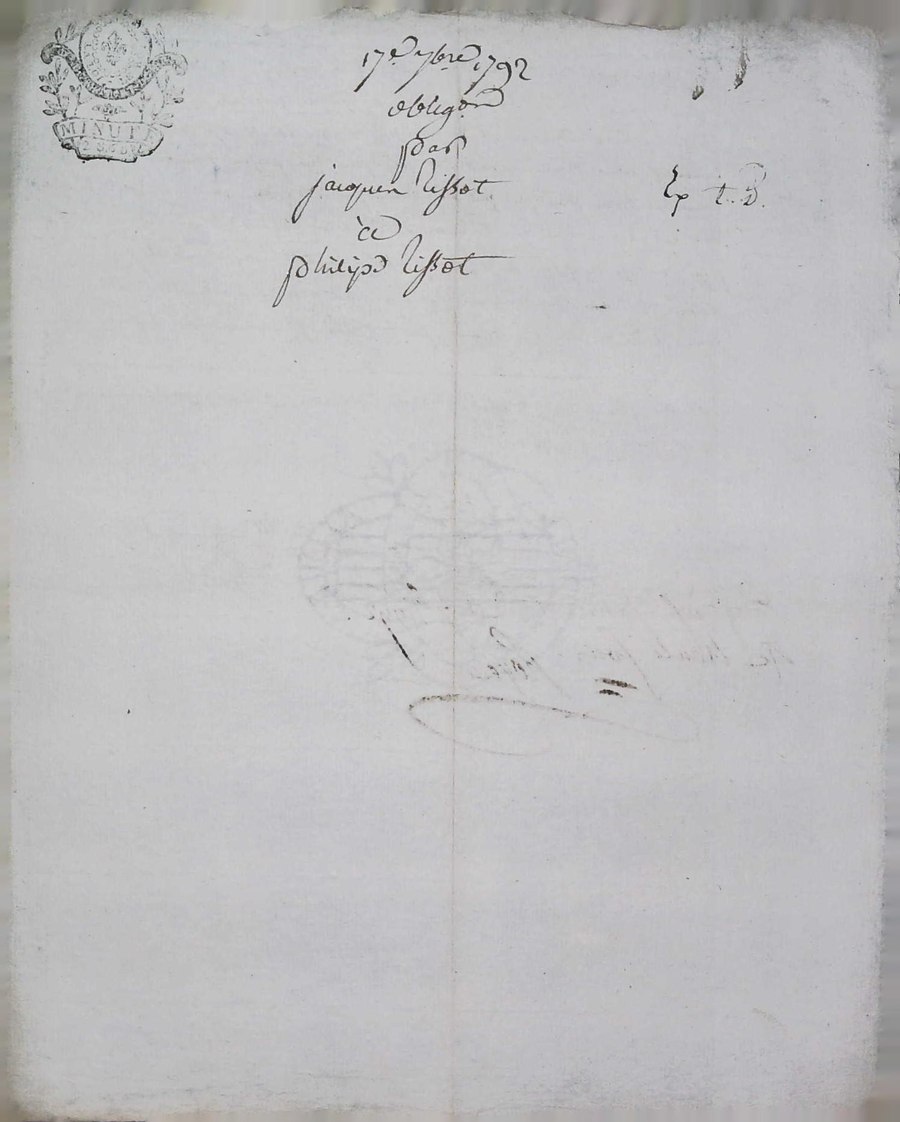 MINUTE
17e 7bre 1792
obligon
par
jacques Tissot
à
philipe Tissot
Ex t. D.